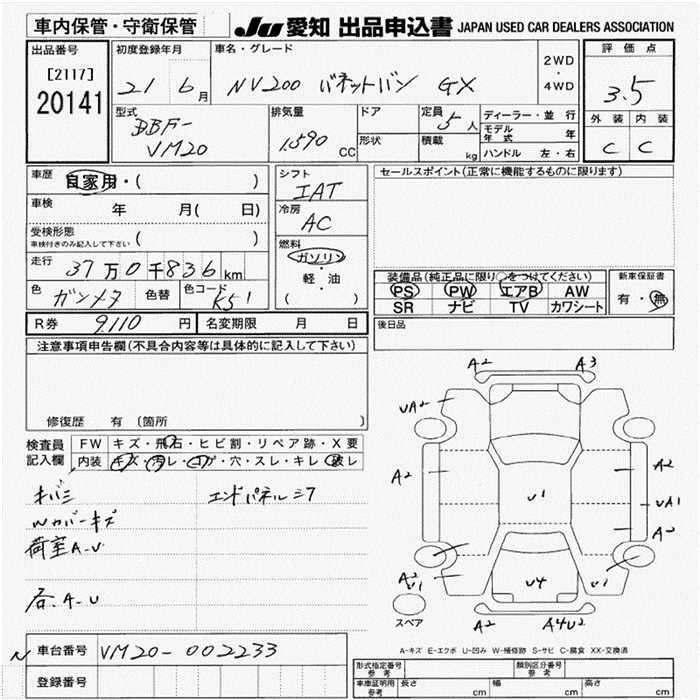 車内保管・守衛保管
JU 愛知 出品申込書 JAPAN USED CAR DEALERS ASSOCIATION
出品番号
[2117]
20141
初度登録年月
21 6月
車名・グレード
NV200 バネットバン GX
2WD
・
4WD
評価点
3.5
外装 内装
C C
型式
BBF-
VM20
排気量
1590 CC
ドア
形状
定員
5人
積載
kg
ディーラー・並行
モデル年式 年
ハンドル 左・右
車歴
自家用・( )
車検 年 月( 日)
受検形態
車検付きのみ記入して下さい ( )
走行 37万0千836km
色 ガンメタ 色替 色コード K51
シフト
IAT
冷房
AC
燃料
ガソリン
・
軽・油
( )
セールスポイント(正常に機能するものに限ります)
装備品(純正品に限り○をつけてください)
PS PW エアB AW
SR ナビ TV カワシート
新車保証書
有・無
後日品
R券 9,110円 名変期限 月 日
注意事項申告欄(不具合内容等は具体的に記入して下さい)
修復歴 有 〔箇所 〕
検査員記入欄
FW キズ・飛石・ヒビ割・リペア跡・X要
内装 キズ・汚レ・コゲ・穴・スレ・キレ・破レ
キバミ
エンドパネルシワ
Wカバーキズ
荷室A-U
右.A-U
A2 A3
UA2
A2 A2
U1 UA1
A2
A2
U1 U4 U1
A2 A4U2
スペア
A-キズ E-エクボ U-凹み W-補修跡 S-サビ C-腐食 XX-交換済
N 車台番号 VM20-002233
登録番号
形式指定番号
参考
類別区分番号
参考
車庫証明用
参考
長さ cm 幅 cm 高さ cm